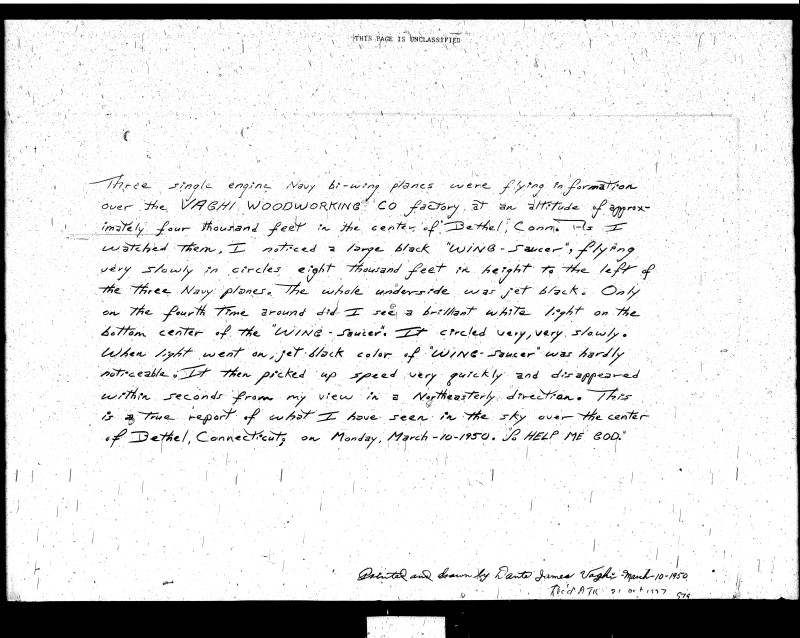 THIS PAGE IS UNCLASSIFIED
Three single engine Navy bi-wing planes were flying in formation
over the VAGHI WOODWORKING CO factory at an altitude of approx-
imately four thousand feet in the center of Bethel, Conn. As I
watched them, I noticed a large black "WING-Saucer", flying
very slowly in circles eight thousand feet in height to the left of
the three Navy planes. The whole underside was jet black. Only
on the fourth time around did I see a brillant white light on the
bottom center of the "WING-Saucer". It circled very, very slowly.
When light went on, jet black color of "WING-Saucer" was hardly
noticeable. It then picked up speed very quickly and disappeared
within seconds from my view in a Northeasterly direction. This
is a true report of what I have seen in the sky over the center
of Bethel, Connecticut, on Monday, March-10-1950. "So HELP ME GOD."
Painted and drawn by Dante James Vaghi March-10-1950
Rec'd 21 Oct